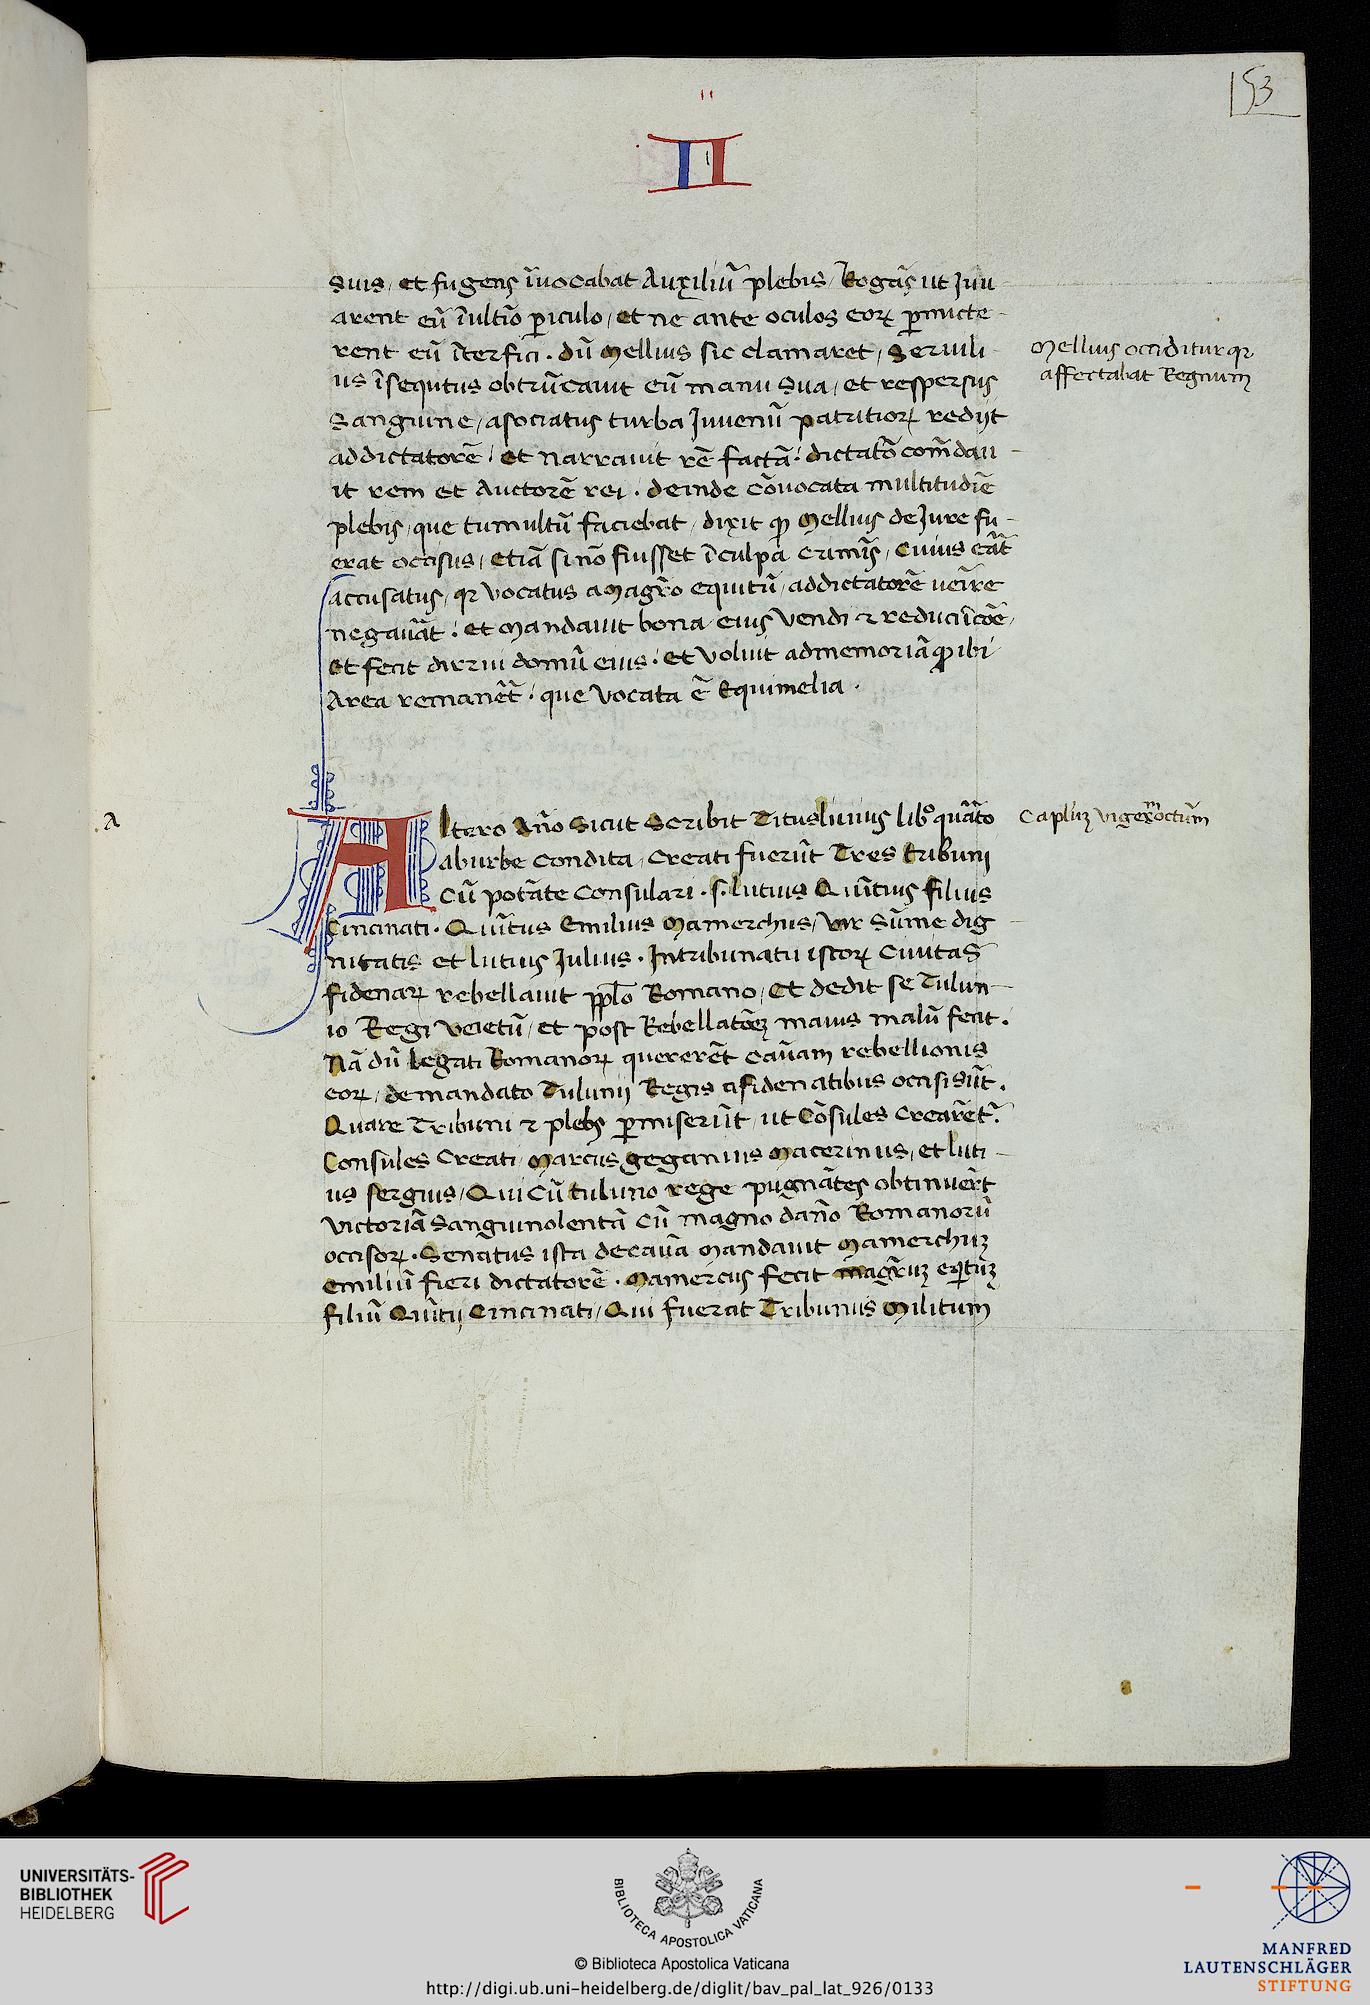 153
II
suis, et fugens īvocabat Auxiliū plebis, Rogās ut Juu
arent eū ī ultīo ꝑiculo, et ne ante oculos eoꝝ ꝑmicte
rent eū īterfici. dū Mellius sic clamaret, Seruili
us īsequtus obtrūcauit eū manu sua, et respersus
Sanguine, asociatus turba Juuenū patritioꝝ redijt
addictatorē, et narrauit rē factā. dictatō com̄dau
it rem et Auctorē rei. deinde cōuocata multitudīe
plebis, que tumultū faciebat, dixit ꝙ Mellius de Jure fu
erat occisus, etiā si nō fuisset ī culpa crimīs, cuius eāt
accusatus, qꝛ vocatus a Magr̄o equitū, addictatorē ueīre
negauāt. et Mandauit bona eius vendi ⁊ reduci ī cōe,
et fecit dirrui domū eius. et voluit ad memoriā ꝙ ibi
Area remanēt. que vocata ē Equimelia.
Mellius occiditur qꝛ
affectabat Regnum
a
Altero Año sicut Scribit Titusliuius libº quāto
aburbe condita, creati fuerūt Tres tribuni
cū potāte Consulari. s. lutius Quītius filius
Cincinati. Quītus Emilius Mamerchus, vir sūme dig
nitatis et lutius Julius. Intribunatu istoꝝ Ciuitas
fidenaꝝ rebellauit ppl̄o Romano, et dedit se Tulun
io Regi veietū, et post Rebellatōeꝫ maius malū fecit.
Nā dū legati Romanoꝝ quererēt cauam rebellionis
eoꝝ, demandato Tulunij Regis afidenatibus occisi sūt.
Quare Tribuni ⁊ plebs ꝑmiserūt, ut Cōsules crearēt.
Consules creati Marcus geganius Macerinus, et luti
us sergius, Qui cū tuluno rege pugnātes obtinuert
victoriā sanguinolentā cū magno dāno Romanorū
occisoꝝ. Senatus ista de cauā mandauit Mamerchuꝫ
Emiliū fieri dictatorē. Mamercus fecit magr̄uꝫ eqͥtuꝫ
filiū Quītij Cincinati, Qui fuerat Tribunus Militum
Caplūꝫ vigexͫoctūm
UNIVERSITÄTS-
BIBLIOTHEK
HEIDELBERG
BIBLIOTECA APOSTOLICA VATICANA
© Biblioteca Apostolica Vaticana
http://digi.ub.uni-heidelberg.de/diglit/bav_pal_lat_926/0133
MANFRED
LAUTENSCHLÄGER
STIFTUNG